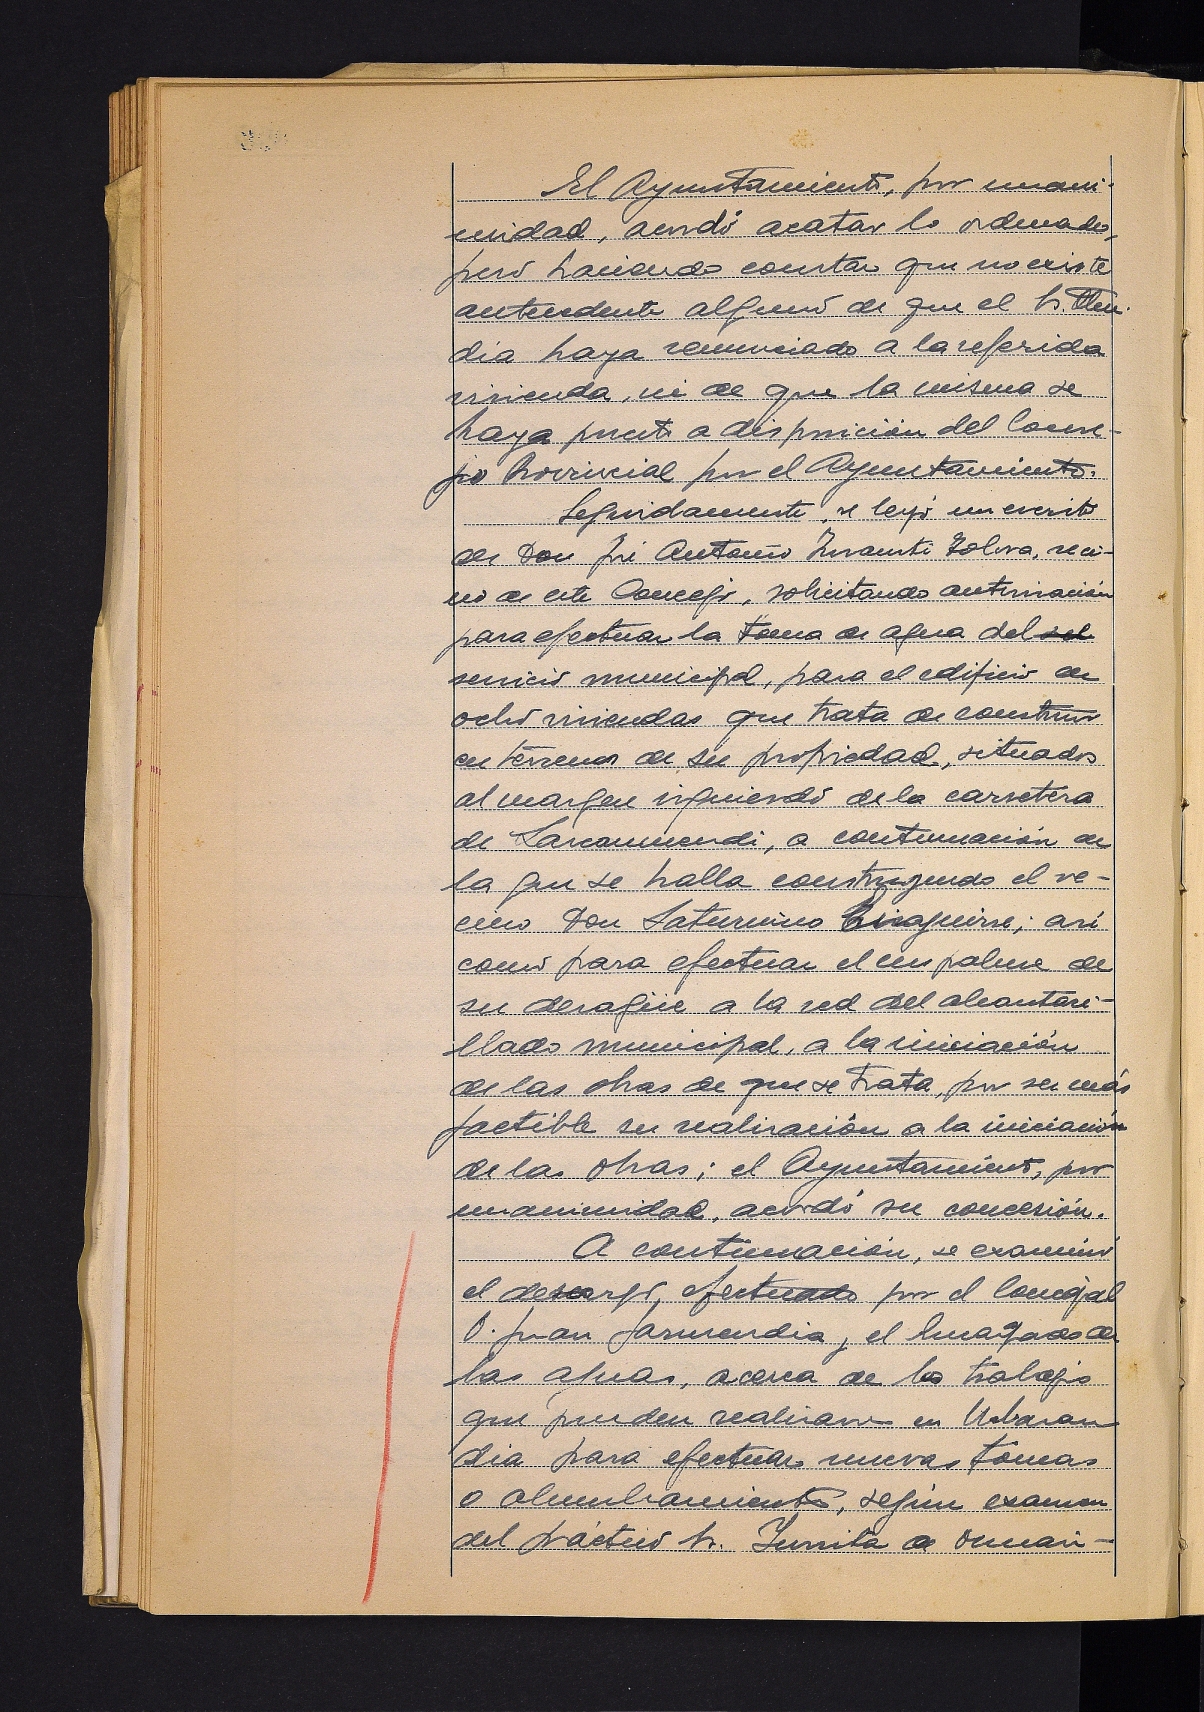 El Ayuntamiento, por unani-
midad, acordó acatar lo ordenado,
pero haciendo constar que no existe
antecedente alguno de que el Sr.
dia haya renunciado a la referida
vivienda, ni de que la misma se
haya puesto a disposición del Conse-
jo Provincial por el Ayuntamiento.
Seguidamente, se leyó un escrito
de Don José Antonio veci-
no de este Concejo, solicitando autorización
para efectuar la toma de agua del
servicio municipal, para el edificio de
ocho viviendas que trata de construir
en terrenos de su propiedad, situados
al margen izquierdo de la carretera
de a continuación de
la que se halla construyendo el ve-
cino Don Saturnino Eizaguirre; así
como para efectuar el empalme de
su desagüe a la red del alcantari-
llado municipal, a la iniciación
de las obras de que se trata, por ser más
factible su realización a la iniciación
de las obras; el Ayuntamiento, por
unanimidad, acordó su concesión.
A continuación, se examinó
el descargo, efectuado por el Concejal
D. Juan Garmendia, y el Encargado de
las aguas, acerca de los trabajos
que pueden realizarse en Urbaran
dia para efectuar nuevas tomas
o alumbramientos, según examen
del práctico Sr. Zurrita de